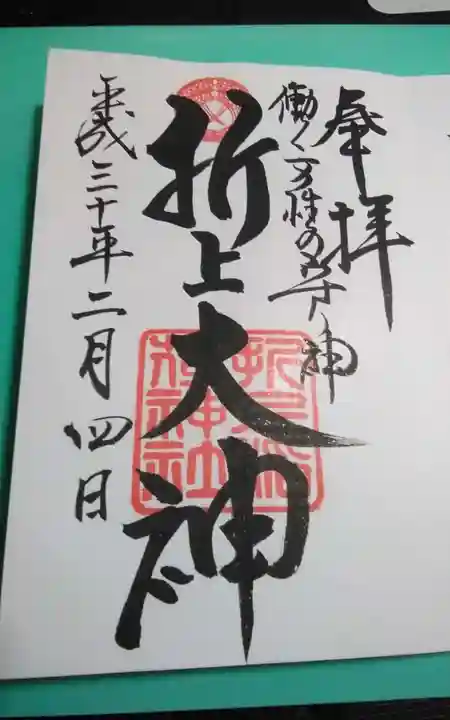 奉拝
働く女性の守り神
折上大神
折上稲
荷神社
平成三十年二月四日